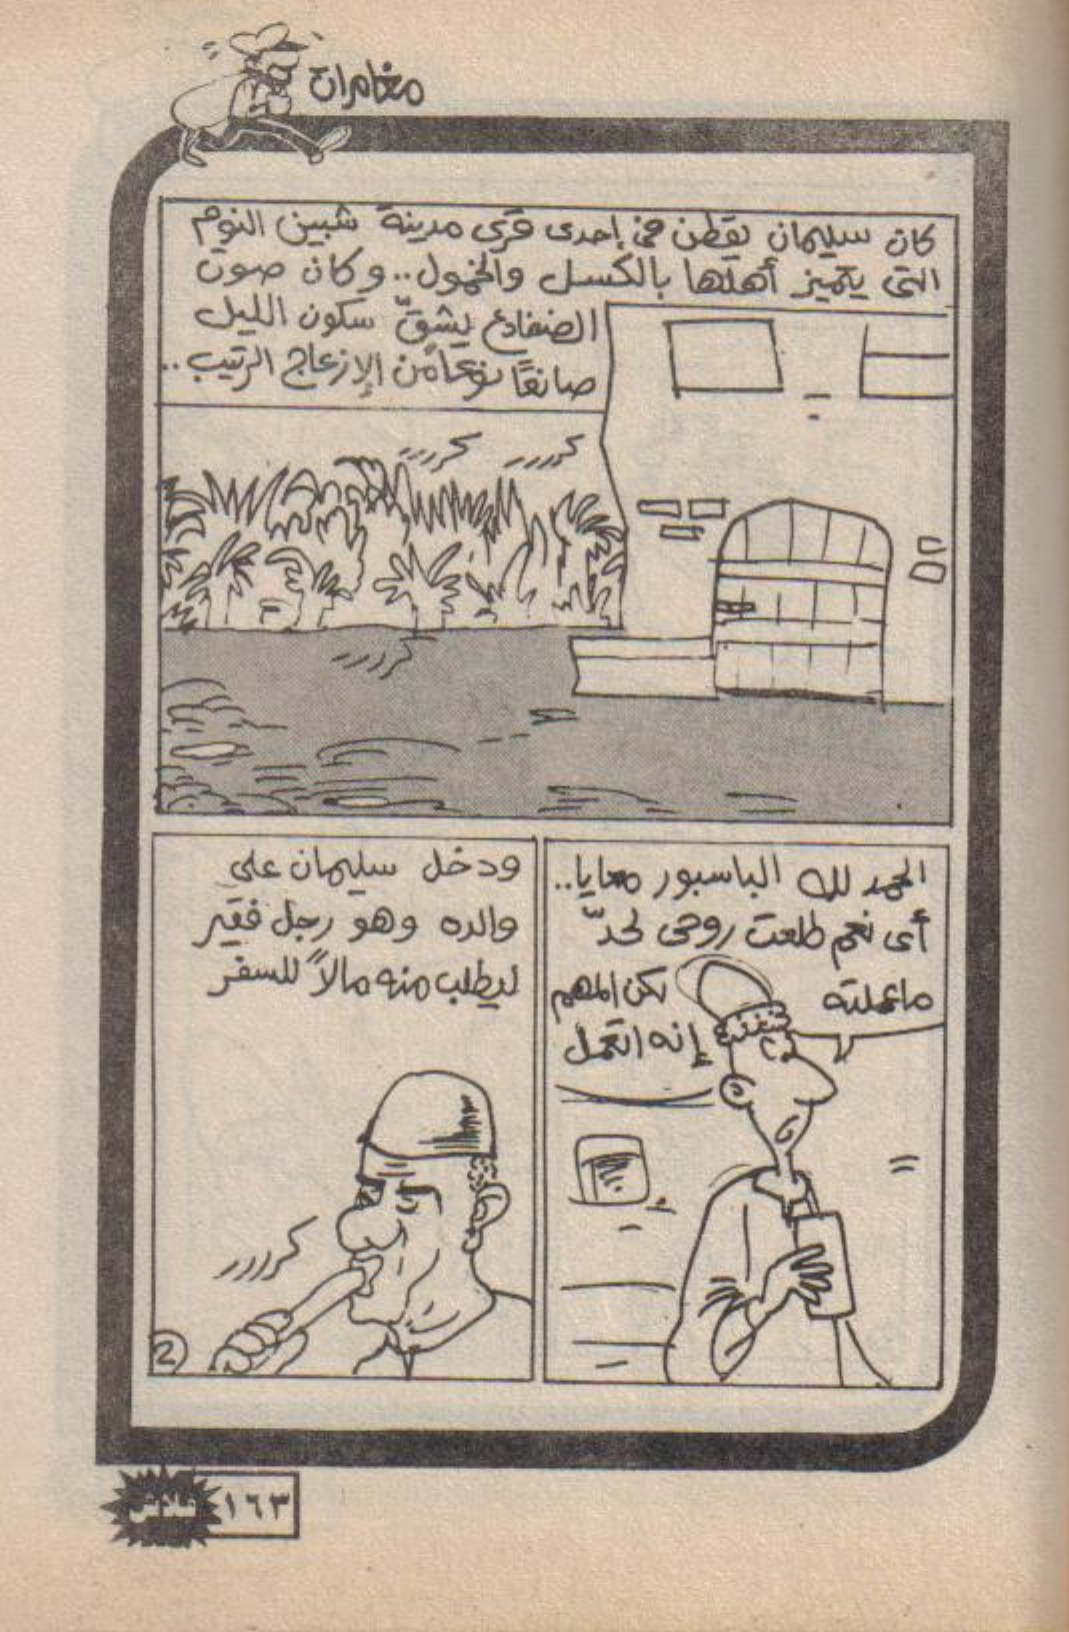 مغامرات
كان سليمان يقطن في إحدى قرى مدينة شبين النوم
التى يتميز أهلها بالكسل والخمول.. وكان صوت
الضفادع يشقّ سكون الليل
صانعًا نوعًا من الإزعاج الرتيب..
كرررر كرررر
كرررر
الحمد لله الباسبور معايا..
أى نعم طلعت روحى لحدّ
ما عملته
لكن المهم
إنه اتعمل
ودخل سليمان على
والده وهو رجل فقير
ليطلب منه مالاً للسفر
كرررر
2
١٦٣ فلاش